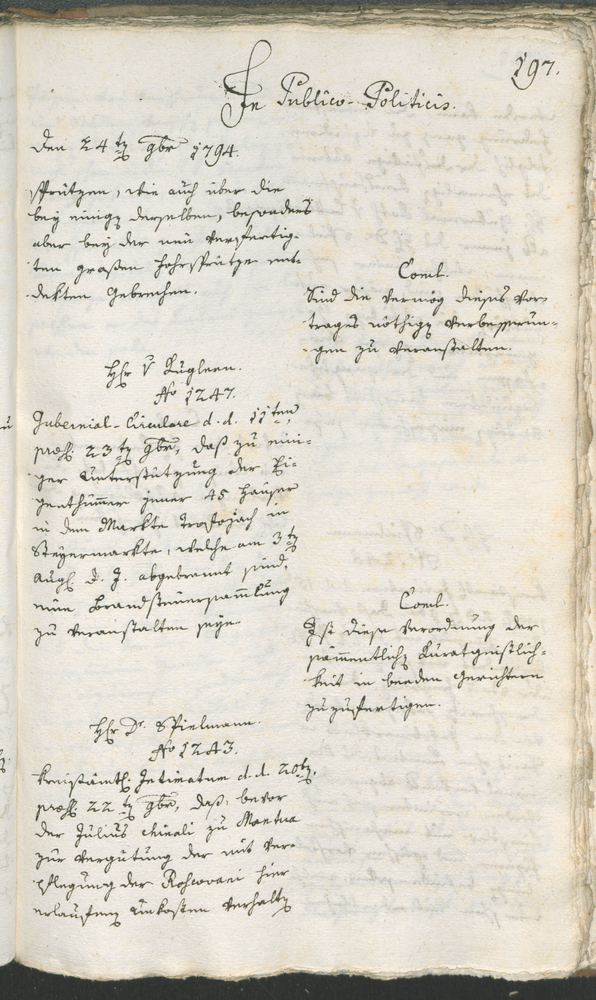 197.
In Publico-Politicis.
Den 24ten 9ber 1794.
spritzen, wie auch über die
bey einigen derselben, besonders
aber bey der neu verfertig-
ten großen Fohrspritze ent-
dekten Gebrechen.
Concl.
Sind die vermög dieses Vor-
trages nöthigen Verbesserun-
gen zu veranstalten.
Hr v Kugleen.
No 1247.
Gubernial-Circulare d. d. 11ten
præs. 23ten 9ber, daß zu eini-
ger Unterstützung der Ei-
genthümmer jener 45 Häuser
in dem Markte Trofojach in
Steyermarkte, welche am 3ten
Aug. d. J. abgebrannt sind,
eine Brandsteuersammlung
zu veranstalten seye
Concl.
Ist diese Verordnung der
sämmentlichen Curatgeistlich-
keit in beeden Gerichtern
zuzufertigen.
Hr Dr. Spielmann.
No 1243.
Kreisämtl. Intimatum d. d. 20ten,
præs. 22ten 9ber, daß: bevor
der Julius Chinali zu Mantua
zur Vergütung der mit Ver-
pflegung der Roscovani hier
erlaufenen Unkosten verhalten